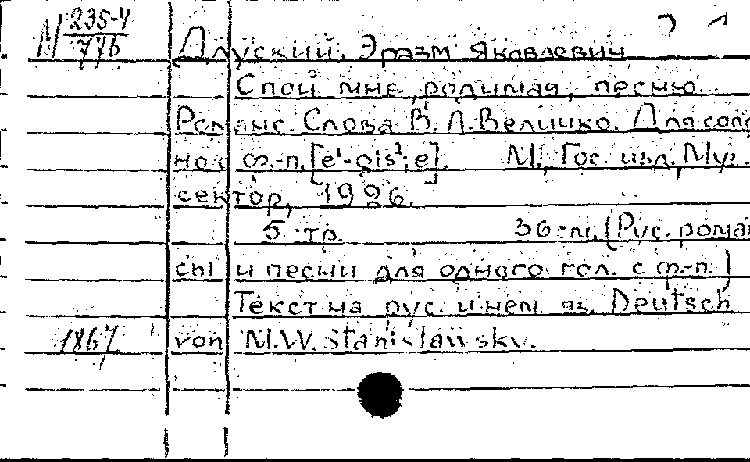 М 235-4
776
Длуский, Эразм Яковлевич
Спой мне, родимая, песню.
Романс. Слова В. Л. Величко. Для соло
но с ф-п. [e¹-gis²; e]. М., Гос. изд., Муз.
сектор, 1926.
5 стр. 36 см. (Рус. роман
сы и песни для одного гол. с ф-п.)
Текст на рус. и нем. яз. Deutsch
1867 von M.W. Stanislawsky.